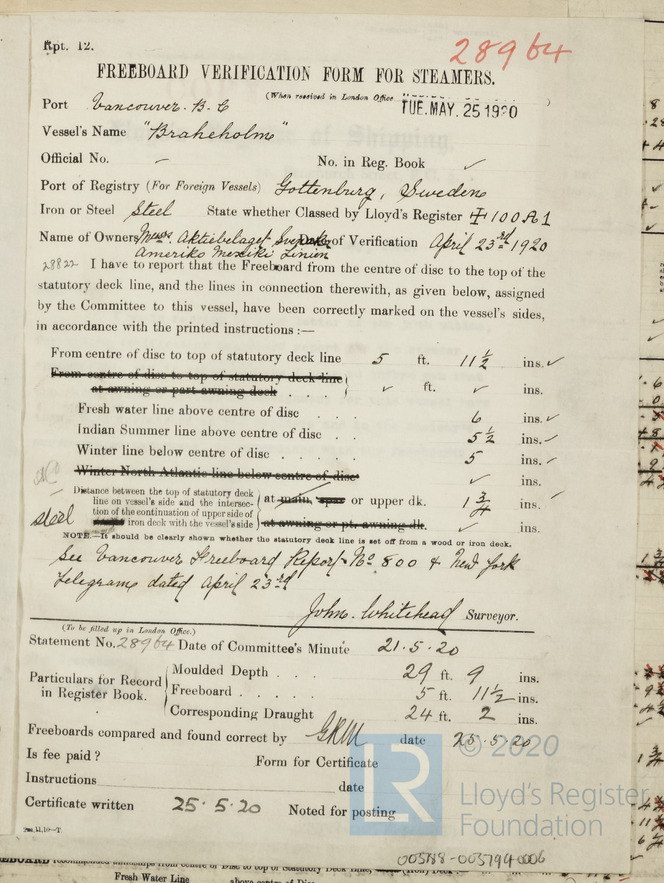 Rpt. 12.
28964
FREEBOARD VERIFICATION FORM FOR STEAMERS.
(When received in London Office
TUE. MAY. 25 1920
Port Vancouver. B. C
Vessel's Name "Braheholm"
Official No. – No. in Reg. Book ✓
Port of Registry (For Foreign Vessels) Gottenburg, Sweden
Iron or Steel Steel State whether Classed by Lloyd's Register ✠ 100 A1
Name of Owners Messrs. Aktiebolaget Svenska Date of Verification April 23rd 1920
Ameriko Mexiko Linien
28822 I have to report that the Freeboard from the centre of disc to the top of the
statutory deck line, and the lines in connection therewith, as given below, assigned
by the Committee to this vessel, have been correctly marked on the vessel's sides,
in accordance with the printed instructions :—
From centre of disc to top of statutory deck line 5 ft. 11 1/2 ins. ✓
From centre of disc to top of statutory deck line
at awning or part awning deck . . . ✓ ft. ✓ ins.
Fresh water line above centre of disc . . . 6 ins. ✓
Indian Summer line above centre of disc . . 5 1/2 ins. ✓
Winter line below centre of disc . . . . . 5 ins. ✓
Winter North Atlantic line below centre of disc ✓ ins.
Distance between the top of statutory deck
line on vessel's side and the intersec-
tion of the continuation of upper side of
steel iron deck with the vessel's side
at main, spar or upper dk. 1 3/4 ins.
at awning or pt. awning dk. ✓ ins.
NOTE.—It should be clearly shown whether the statutory deck line is set off from a wood or iron deck.
See Vancouver Freeboard Report No 800 & New York
telegrams dated April 23rd
John. Whitehead Surveyor.
(To be filled up in London Office.)
Statement No. 28964 Date of Committee's Minute 21.5.20
Particulars for Record
in Register Book.
Moulded Depth . . . 29 ft. 9 ins.
Freeboard . . . . 5 ft. 11 1/2 ins.
Corresponding Draught 24 ft. 2 ins.
Freeboards compared and found correct by date 25.5.20
Is fee paid? Form for Certificate
Instructions date
Certificate written 25.5.20 Noted for posting
© 2020
LR
Lloyd's Register
Foundation
003788-003794-0006
Fresh Water Line above centre of Disc